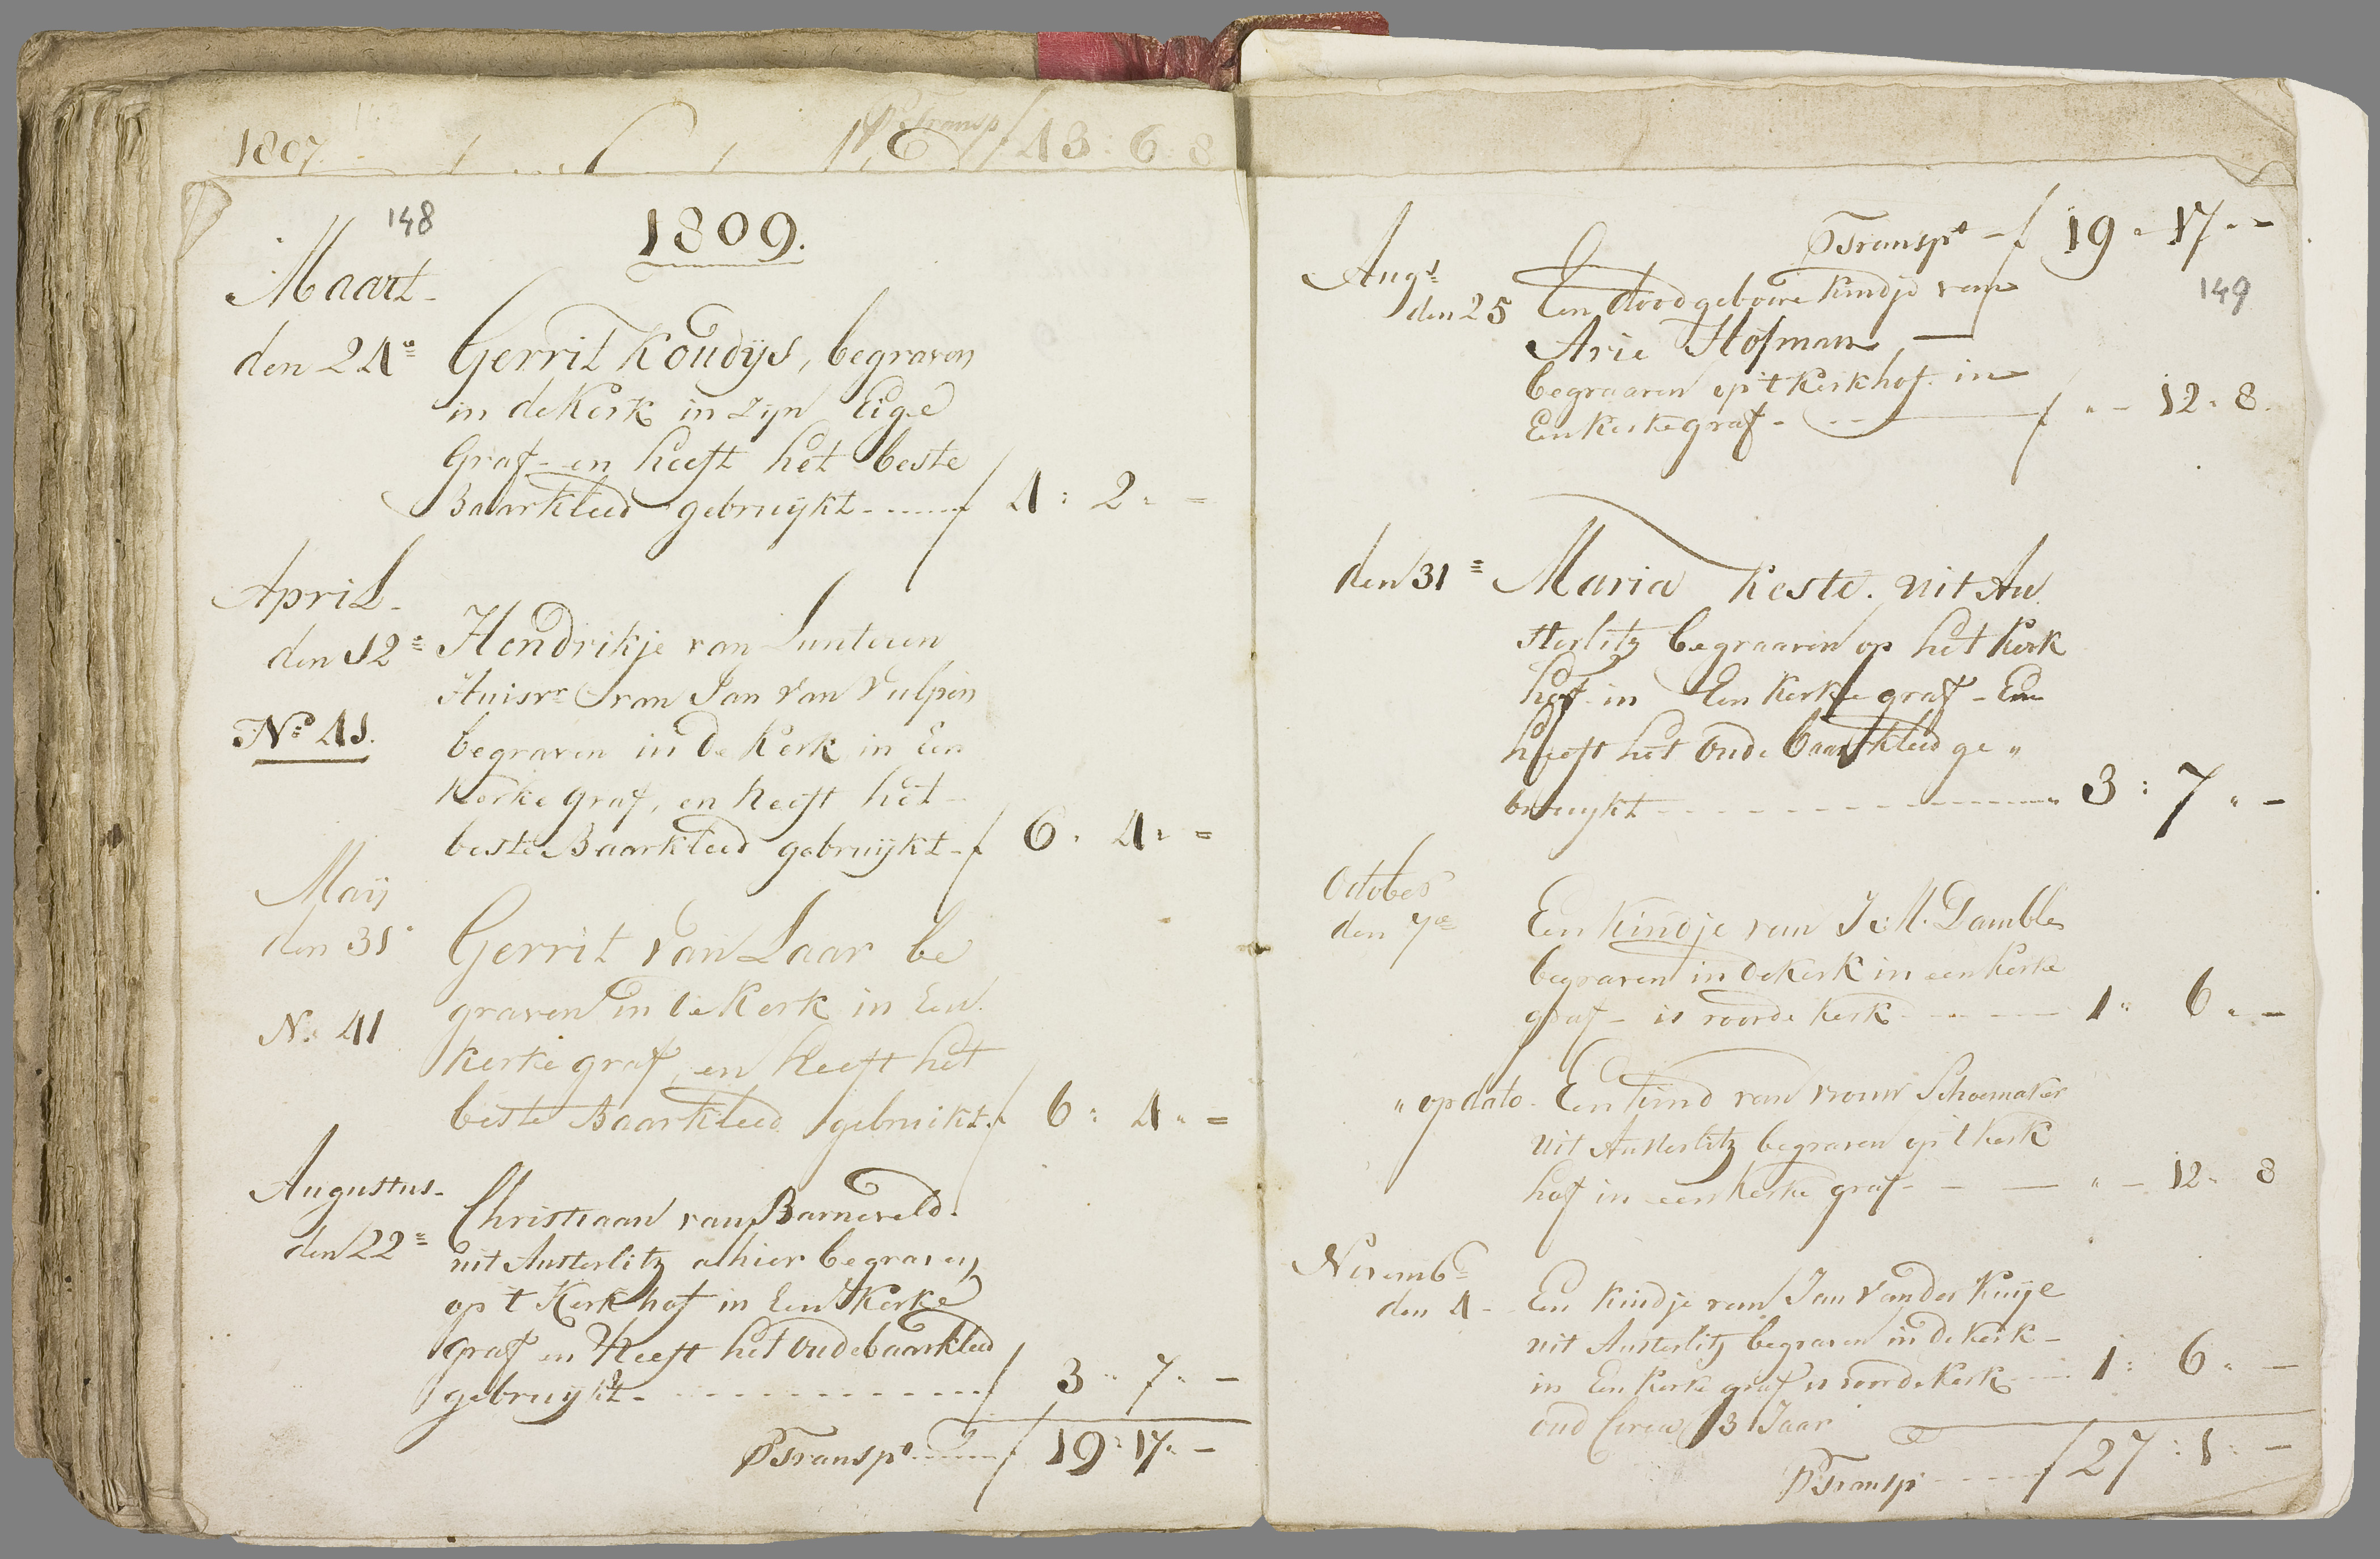 1807
p Transp f 43 : 6 : 8
148
1809.
Maart
den 24e Gerrit Koudijs, begraven
in de Kerk in zijn Eige
Graf - en heeft het beste
Baarkleed gebruijkt f 4 : 2 : =
April
den 12e Hendrikje van Lunteren
Huisvr van Jan van Vulpen
No 41. begraven in de Kerk in Een
Kerke graf, en heeft het
beste Baarkleed gebruijkt f 6 : 4 : =
Maij
den 31 Gerrit van Laar be
No 41 graven in de Kerk in Een
kerke graf, en heeft het
beste Baarkleed gebruikt f 6 : 4 : =
Augustus
den 22e Christiaan van Barneveld
uit Austerlitz alhier begraven
op 't Kerkhof in Een Kerke
graf en Heeft het oude baarkleed
gebruijkt f 3 : 7 : -
p Transpo f 19 : 17 : -
p Transpo f 19 : 17 : -
149
Augs
den 25 Een doodgeboore kindje van
Arie Hofman
begraaven op 't Kerkhof in
Een Kerkegraf f " - 12 : 8
den 31e Maria Keste. uit Au
sterlitz begraaven op het Kerk
hof in Een Kerke graf - En
heeft het oude baarkleed ge "
bruijkt 3 : 7 : -
October
den 7e Een kindje van J: M. Damble
begraven in de Kerk in een kerke
graf - is voor de kerk 1 : 6 : -
" op dato Een kind van vrouw Schoemaker
uit Austerlitz begraven op 't kerk
hof in een kerke graf " - 12 : 8
Novemb
den 4 Een kindje van Jan van der Kuijl
uit Austerlitz begraven in de kerk
in Een kerke graf is voor de kerk 1 : 6 : -
oud Circa 13 Jaar
p Transp f 27 : 1 : -